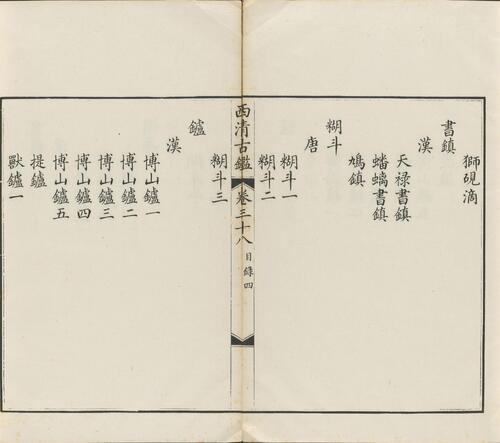 獅硯滴
書鎮
漢
天祿書鎮
蟠螭書鎮
鳩鎮
糊斗
唐
糊斗一
糊斗二
西清古鑑
卷三十八
目錄四
糊斗三
鑪
漢
博山鑪一
博山鑪二
博山鑪三
博山鑪四
博山鑪五
提鑪
獸鑪一